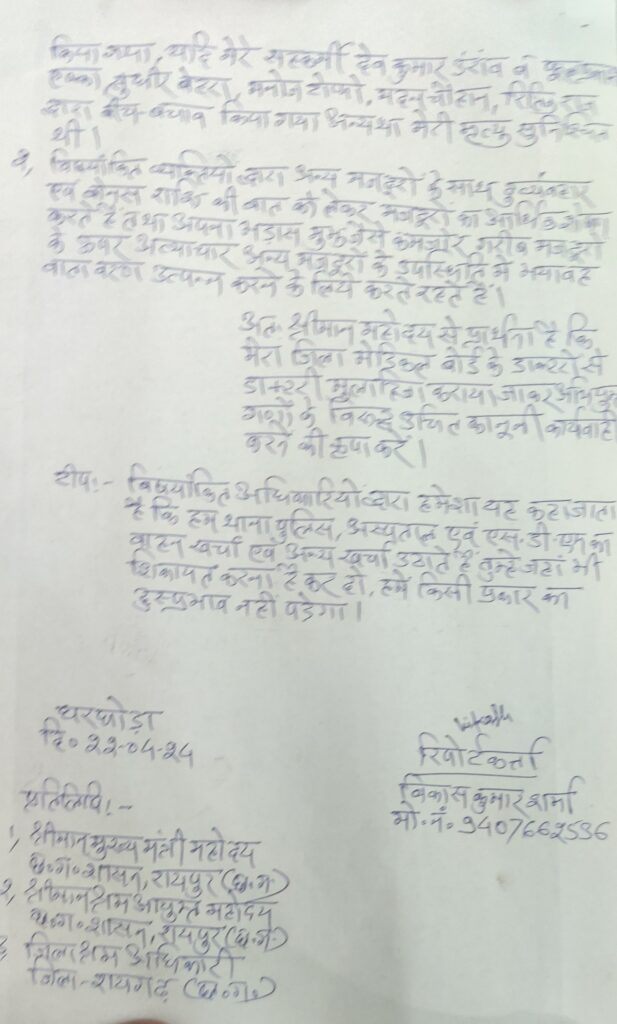 किया गया, यदि मेरे सहकर्मी देव कुमार उरांव व
एक्का, सुधीर बेहरा, मनोज टोप्पो, मदन चौहान,
द्वारा बीच-बचाव किया गया अन्यथा मेरी मृत्यु सुनिश्चित
थी।
2, विषयांकित व्यक्तियों द्वारा अन्य मजदूरों के साथ दुर्व्यवहार
एवं बोनस राशि की बात को लेकर मजदूरों का आर्थिक शोषण
करते हैं तथा अपना भड़ास मुझ जैसे कमजोर गरीब मजदूरों
के ऊपर अत्याचार अन्य मजदूरों के उपस्थिति में भयावह
वातावरण उत्पन्न करने के लिये करते रहते हैं।
अतः श्रीमान महोदय से प्रार्थना है कि
मेरा जिला मेडिकल बोर्ड के डाक्टरों से
डाक्टरी मुलाहिजा कराया जाकर अभियुक्त
गणों के विरुद्ध उचित कानूनी कार्यवाही
करने की कृपा करें।
टीप:- विषयांकित अधिकारियों द्वारा हमेशा यह कहा जाता
है कि हम थाना पुलिस, अस्पताल एवं एस.डी.एम का
वाहन खर्चा एवं अन्य खर्चा उठाते हैं तुम्हे जहां भी
शिकायत करना है कर दो, हमें किसी प्रकार का
दुस्प्रभाव नहीं पड़ेगा।
घरघोड़ा
दि० 22-04-24
रिपोर्टकर्ता
विकास कुमार शर्मा
मो.नं. 9407662536
प्रतिलिपि:-
1, श्रीमान मुख्य मंत्री महोदय
छ.ग. शासन, रायपुर (छ.ग.)
2, श्रीमान श्रम आयुक्त महोदय
छ.ग. शासन, रायपुर (छ.ग.)
3 जिला श्रम अधिकारी
जिला-रायगढ़ (छ.ग.)